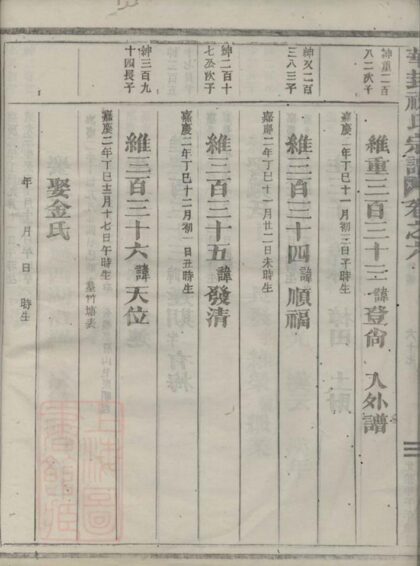 紳重二百
八二次子
維重三百三十三諱登尙 入外譜
嘉慶二年丁巳十一月初二日子時生
紳又二百
三八三子
維三百三十四諱順福
嘉慶二年丁巳十一月廿二日未時生
紳二百十
七公次子
維三百三十五諱發清
嘉慶二年丁巳十二月初一日丑時生
紳三百九
十四長子
維三百三十六諱天位
嘉慶二年丁巳十二月十七日午時生
娶金氏
年 月 日 時生
上海圖